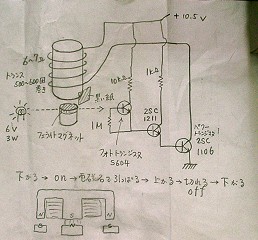 +10.5V
6~7Ω
トランス
500~600回
巻き
黒い紙
10kΩ
1kΩ
6V
3W
フェライトマグネット
1M
2SC
1211
フォトトランジスタ
5604
パワー
トランジスタ
2SC
1106
下がる→on→電磁石で引っぱる→上がる→切れる→下がる
off
N
S
N